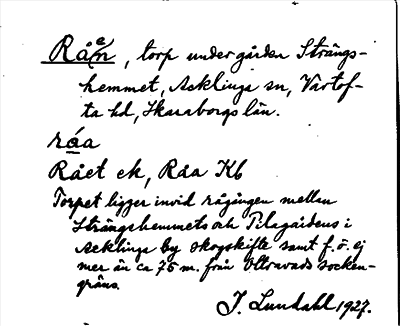 Råen, torp under gården Strängs-
hemmet, Acklinga sn, Vartof-
ta hd, Skaraborgs län.
råa
Rået ek, Råa Kb
Torpet ligger invid rågången mellan
Strängshemmets och Pilagårdens i
Acklinga by skogskifte samt f. ö. ej
mer än ca 75 m. från Ottravads socken-
gräns.
J. Lundahl 1927.